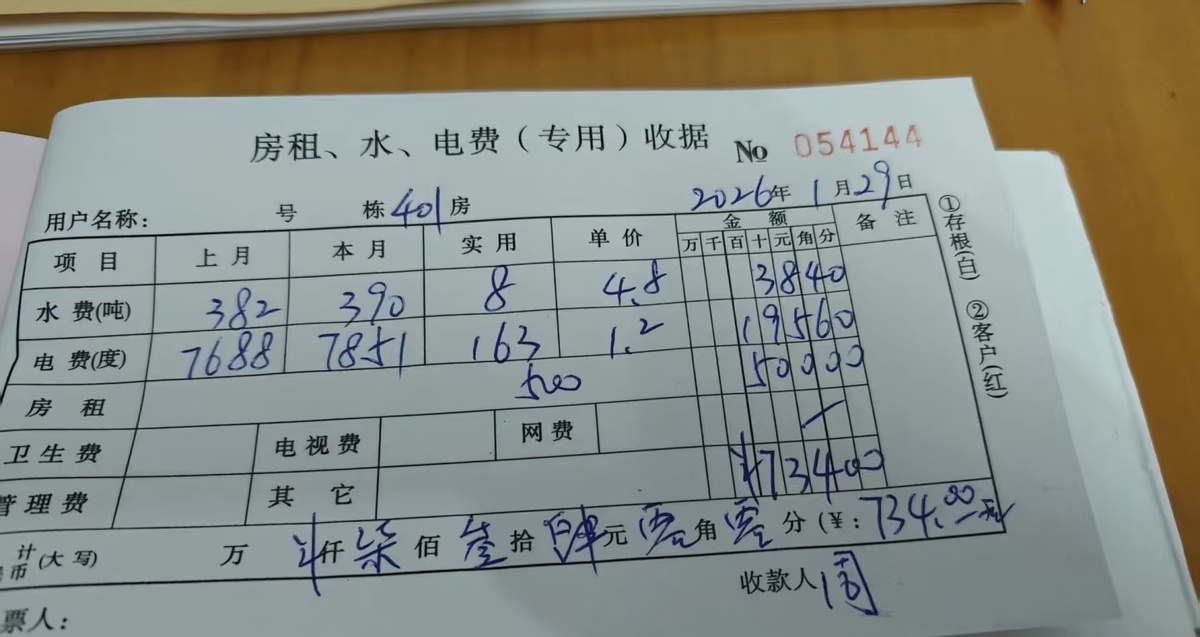 房租、水、电费（专用）收据 No 054144
用户名称： 号 栋 401 房 2026年 1月29日
项目 上月 本月 实用 单价 金额 备注
万 千 百 十 元 角 分
水费(吨) 382 390 8 4.8 3840
电费(度) 7688 7851 163 1.2 19560
房租 500 50000
卫生费 电视费 网费
管理费 其它 ¥73400
计 (大写) 万 仟 柒 佰 叁 拾 肆 元 零 角 零 分 (¥: 734.00元
币
票人： 收款人 周
①存根(白) ②客户(红)